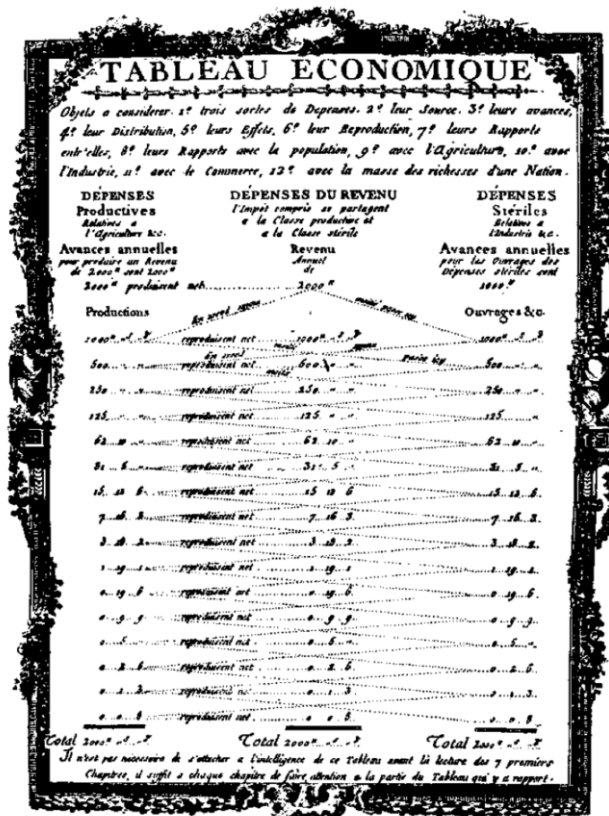 TABLEAU ECONOMIQUE
Objets a considerer. 1.º trois sortes de Depenses. 2.º leur Source. 3.º leurs avances,
4.º leur Distribution, 5.º leurs Effets, 6.º leur Reproduction, 7.º leurs Rapports
entr'elles, 8.º leurs Rapports avec la population, 9.º avec l'Agriculture, 10.º avec
l'Industrie, 11.º avec le Commerce, 12.º avec la masse des richesses d'une Nation.
DÉPENSES DÉPENSES DU REVENU DÉPENSES
Productives l'Impot compris se partagent Stériles
Relatives a a la Classe productive et Relatives a
l'Agriculture &c. a la Classe stérile l'Industrie &c.
Avances annuelles Revenu Avances annuelles
pour produire un Revenu Annuel pour les Ouvrages des
de 2000 sont 2000 de Dépenses stériles sont
2000 produisent net 2000 1000
Productions Ouvrages &c.
1000 reproduisent net 1000 1000
500 reproduisent net 500 500
250 reproduisent net 250 250
125 reproduisent net 125 125
62 10 reproduisent net 62 10 62 10
31 5 reproduisent net 31 5 31 5
15 12 6 reproduisent net 15 12 6 15 12 6
7 16 3 reproduisent net 7 16 3 7 16 3
3 18 2 reproduisent net 3 18 2 3 18 2
1 19 1 reproduisent net 1 19 1 1 19 1
0 19 6 reproduisent net 0 19 6 0 19 6
0 9 9 reproduisent net 0 9 9 0 9 9
0 5 reproduisent net 0 5 0 5
0 2 6 reproduisent net 0 2 6 0 2 6
0 1 3 reproduisent net 0 1 3 0 1 3
0 0 8 reproduisent net 0 0 8 0 0 8
Total 2000 Total 2000 Total 2000
Il n'est pas nécessaire de s'attacher a l'intelligence de ce Tableau avant la lecture des 7 premiers
Chapitres, il suffit a chaque chapitre de faire attention a la partie du Tableau qui y a rapport.